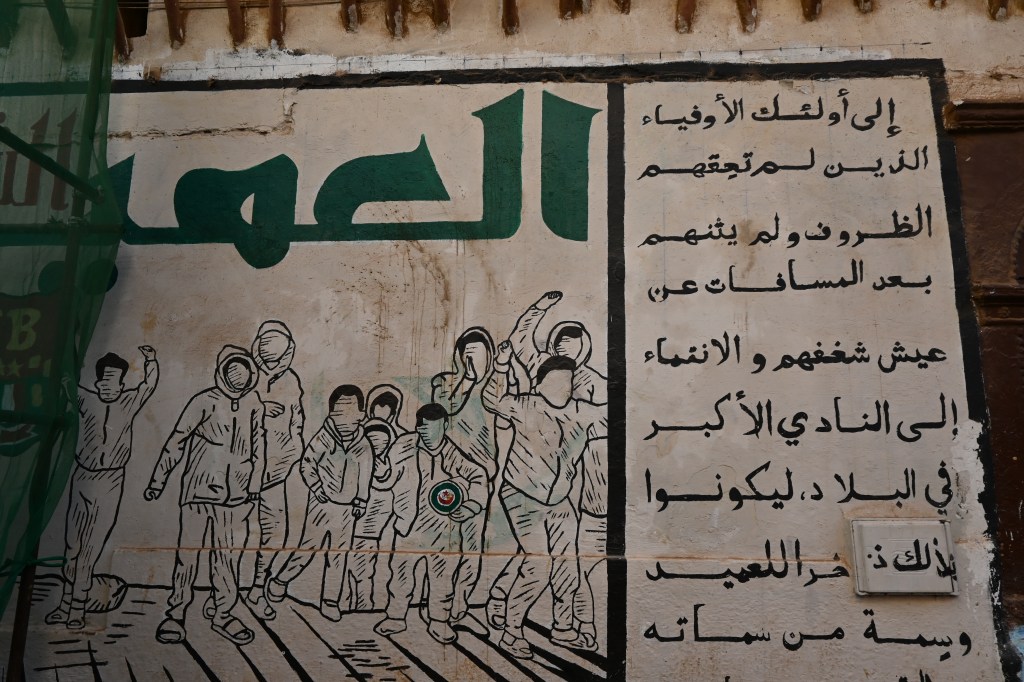 إلى أولئك الأوفياء
الذين لم تعِقهم
الظروف ولم يثنهم
بعد المسافات عن
عيش شغفهم والانتماء
إلى النادي الأكبر
في البلاد، ليكونوا
بذلك ذخرا للعميد
وسِمة من سماته
العميد